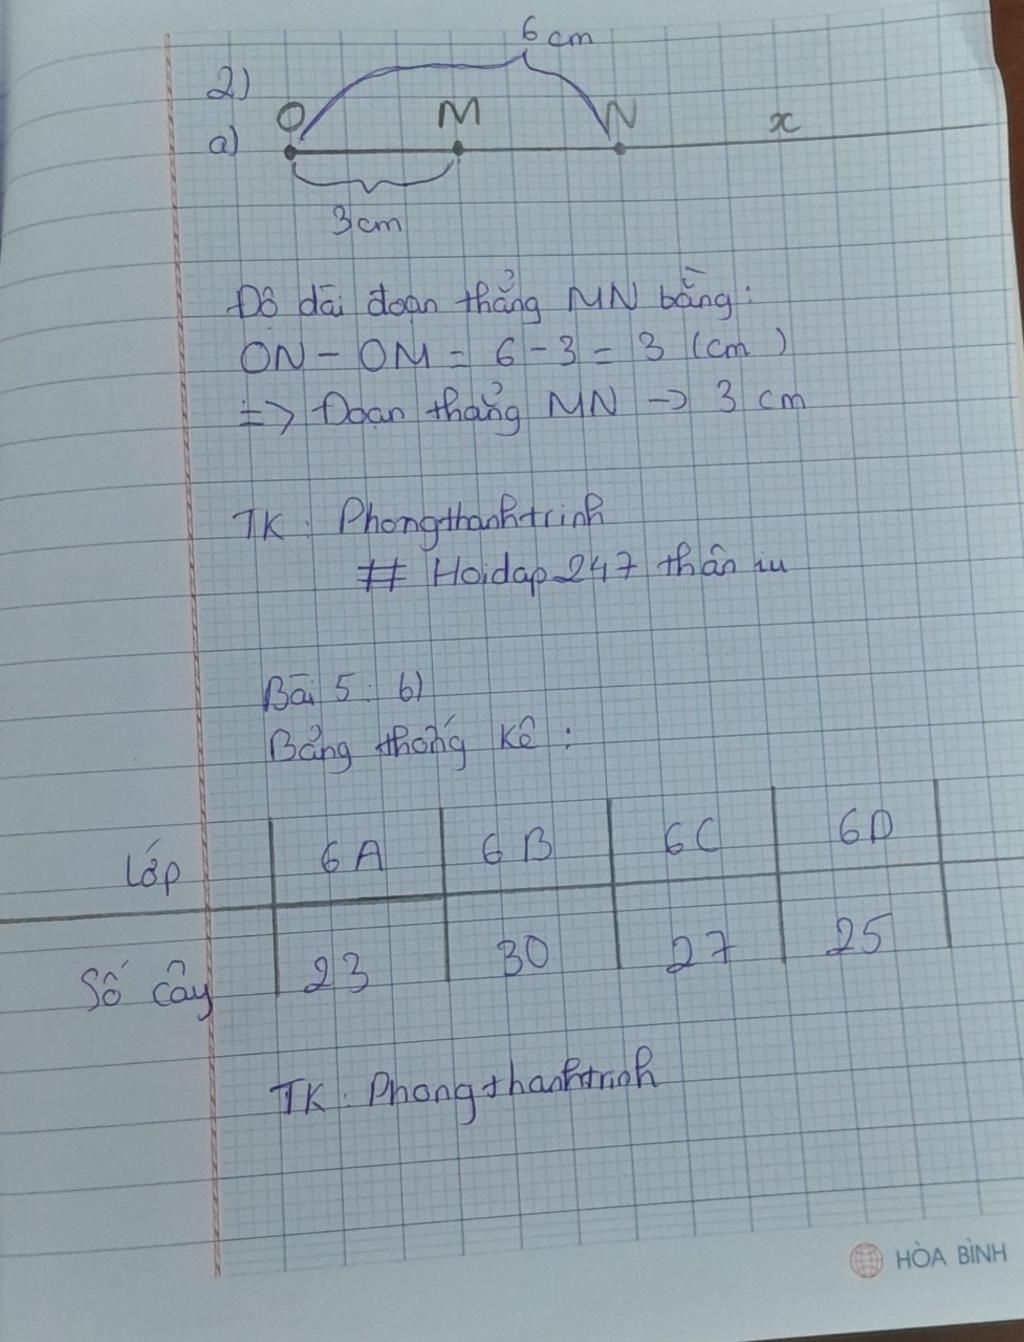 6 cm
2)
O M N x
a)
3 cm
Độ dài đoạn thẳng MN bằng:
ON - OM = 6 - 3 = 3 (cm)
=> Đoạn thẳng MN -> 3 cm
TK: Phongthanhtrinh
# Hoidap247 thân iu
Bài 5: b)
Bảng thống kê:
Lớp 6A 6B 6C 6D
Số cây 23 30 27 25
TK: Phongthanhtrinh
HÒA BÌNH